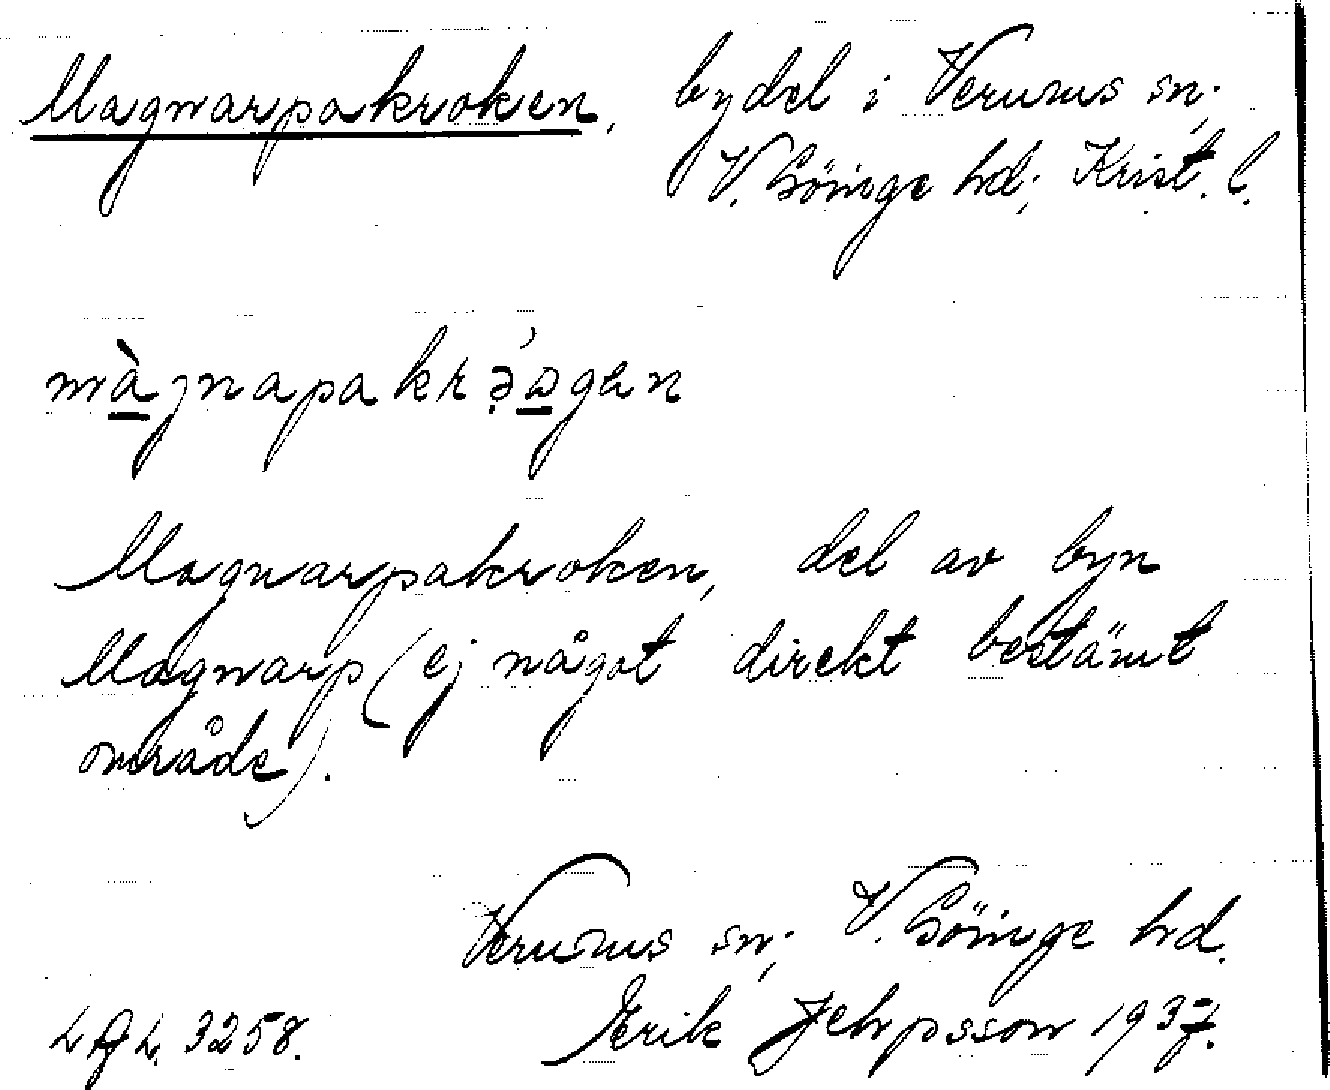 Magnarpakroken, bydel i Verums sn;
V. Göinge hd; Krist. l.
màgnapakrə́ɑgen
Magnarpakroken, del av byn
Magnarp (ej något direkt bestämt
område).
Verums sn; V. Göinge hd.
3258. Erik Jehpsson 1937.